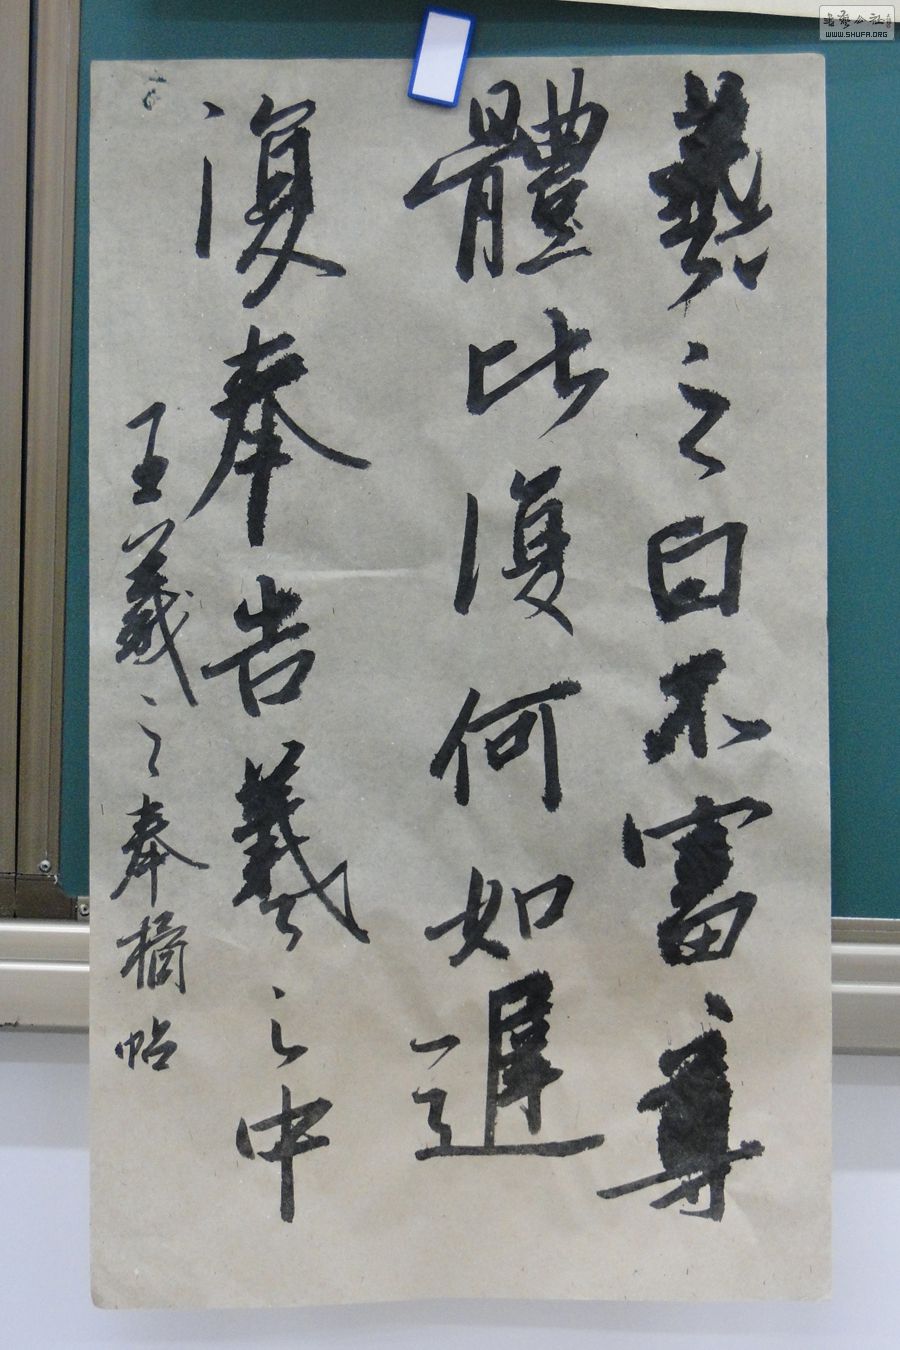 羲之白不審尊
體比復何如遲
復奉告羲之中
王羲之奉橘帖
書藝公社
WWW.SHUFA.ORG